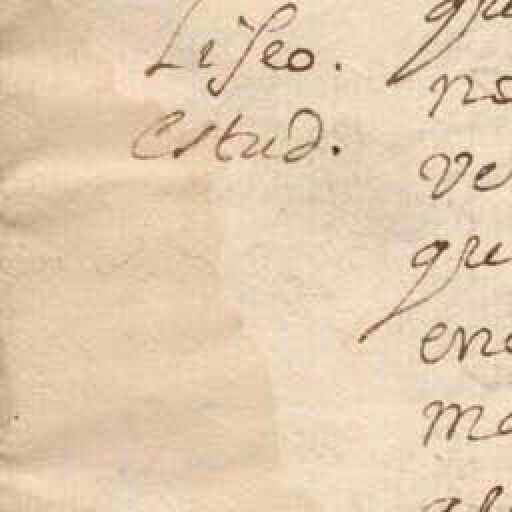 Liseo.
estud.
que
no
ve
que
ene
ma